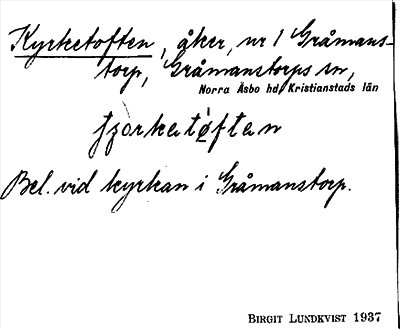 Kyrketoften, åker, nr 1 Gråmans-
torp, Gråmanstorps sn,
Norra Åsbo hd, Kristianstads län
Bel. vid kyrkan i Gråmanstorp.
BIRGIT LUNDKVIST 1937